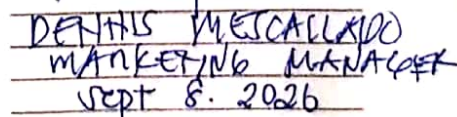 DENNIS MESCALLADO
MARKETING MANAGER
Sept 8. 2026